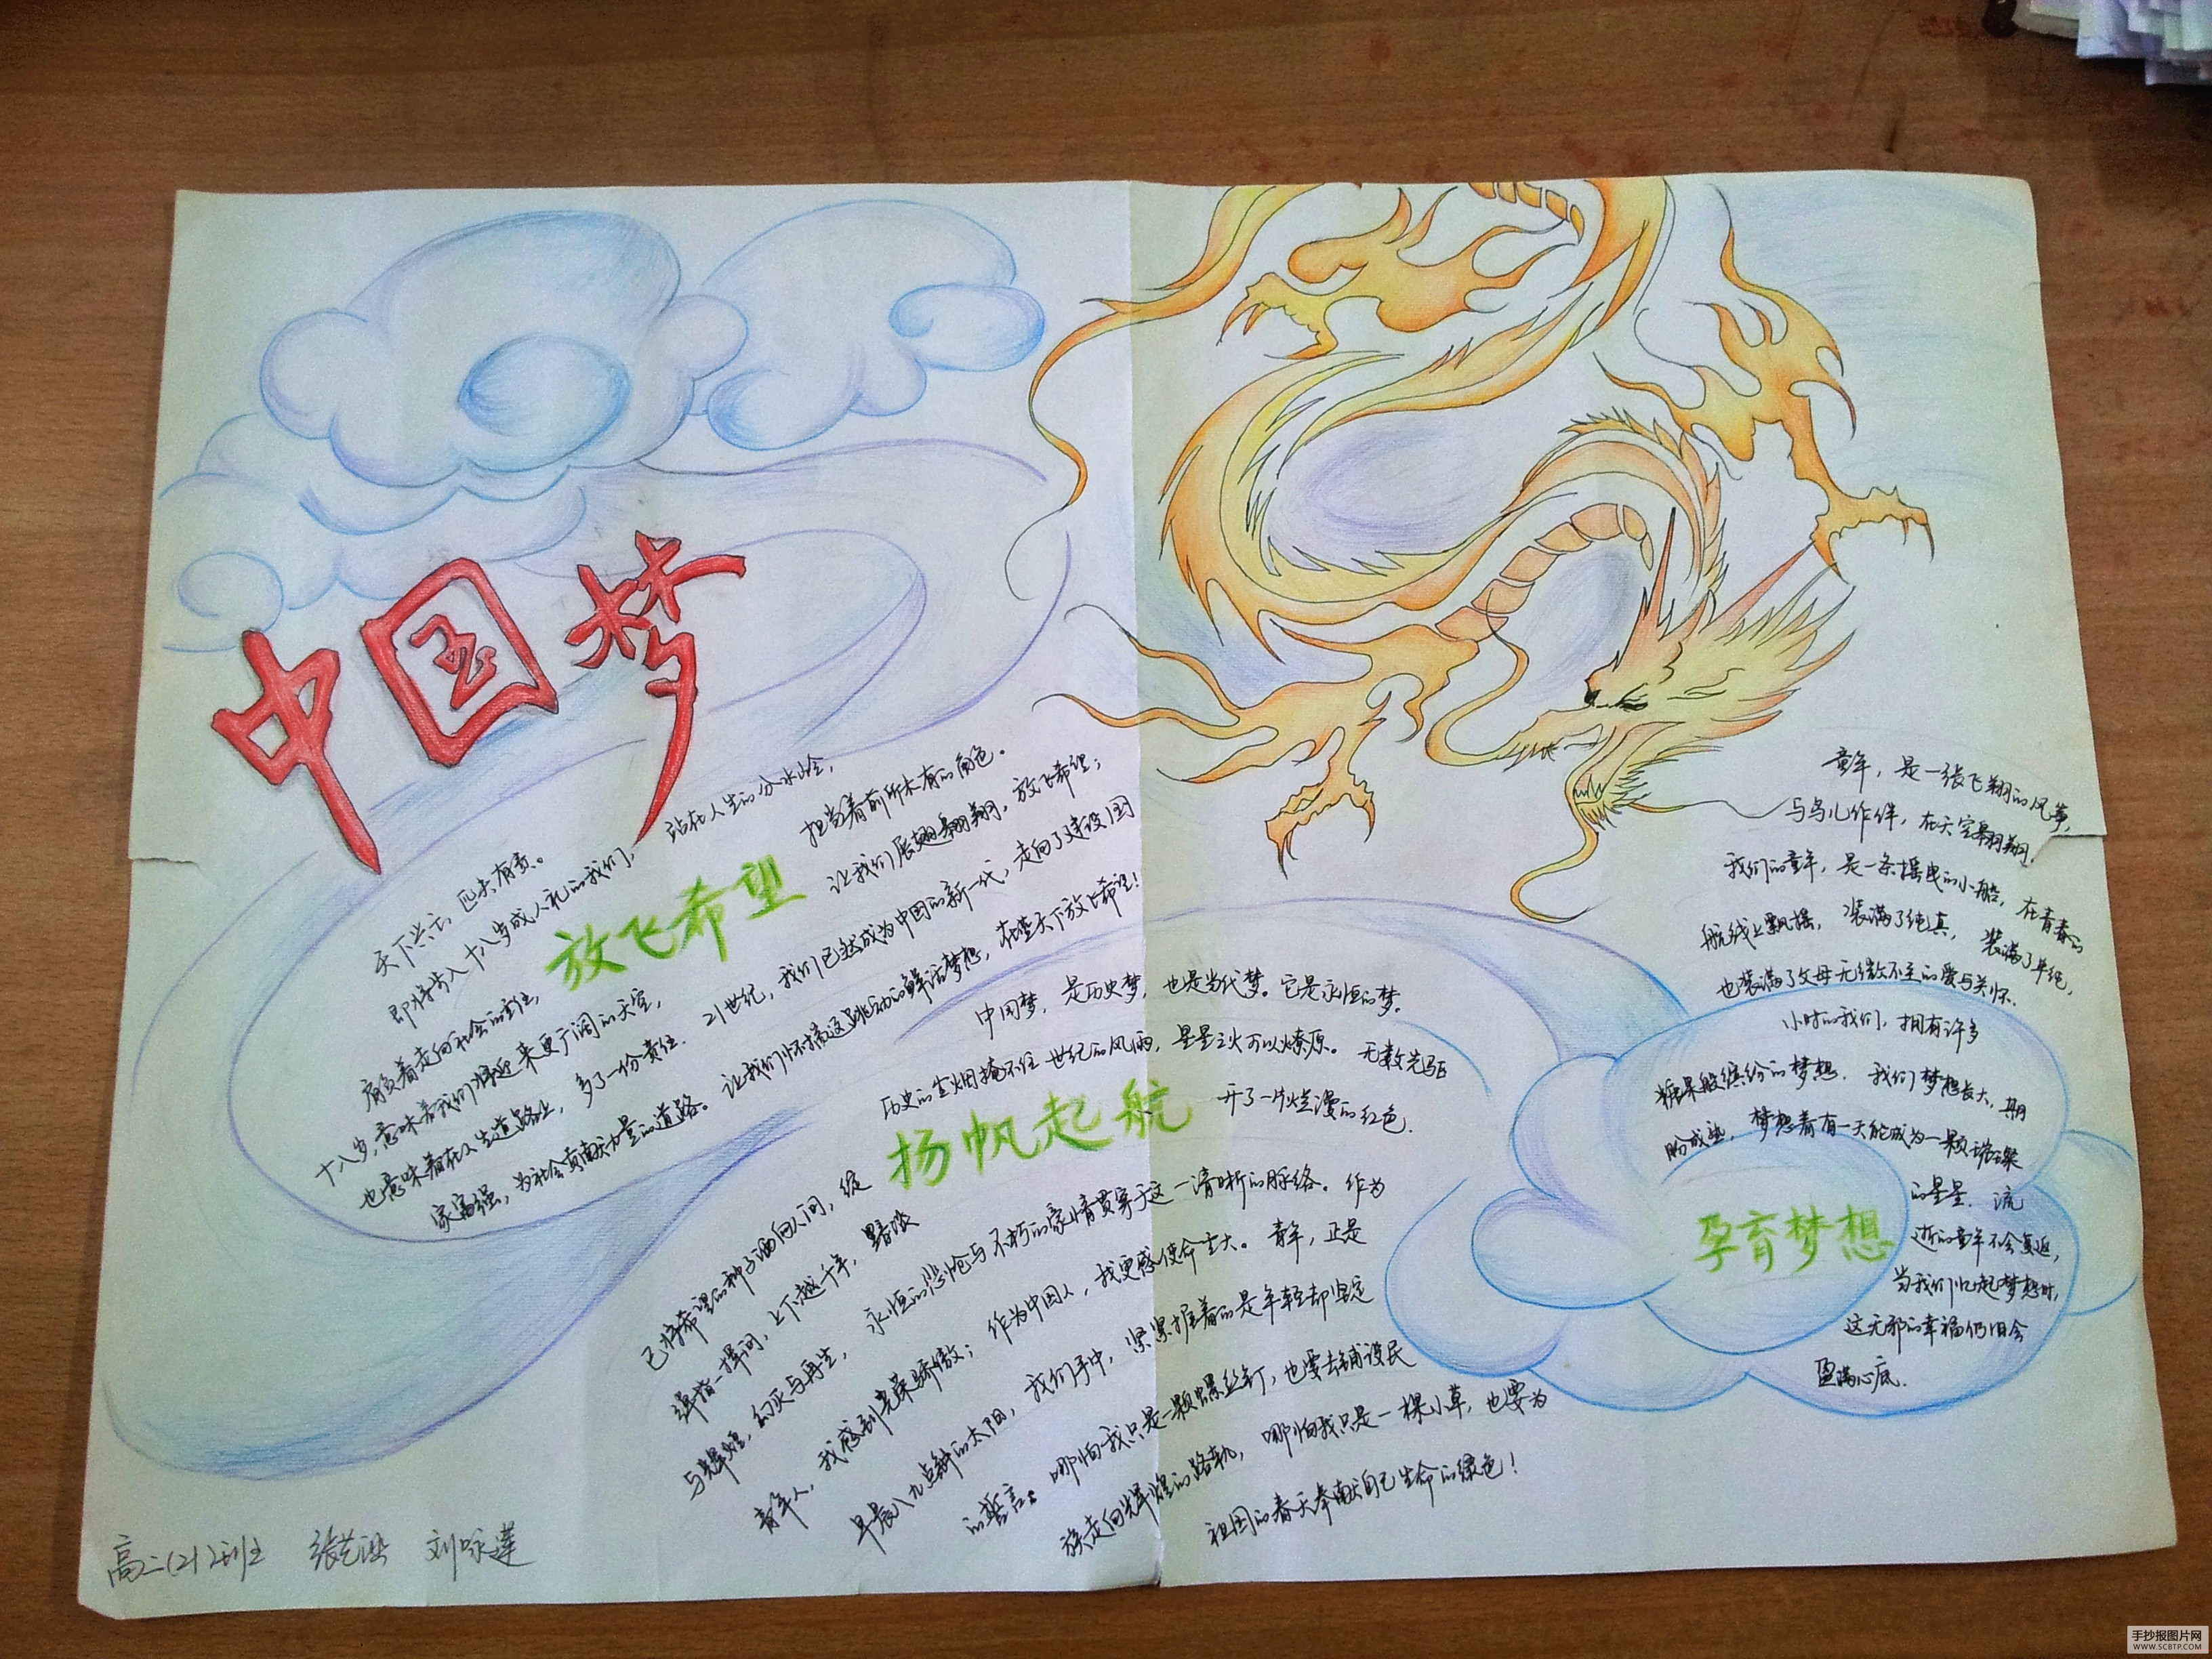 中国梦
天下兴亡，匹夫有责。
即将步入十八岁成人礼的我们，站在人生的分水岭，
肩负着走向社会的责任，担当着前所未有的角色。
放飞希望
十八岁，意味着我们将迎来更广阔的天空，让我们展翅翱翔，放飞希望；
也意味着在人生道路上，多了一份责任．21世纪，我们已然成为中国的新一代，走向了建设国
家富强，为社会贡献力量的道路。让我们怀揣这跳动的鲜活梦想，在蓝天下放飞希望！
中国梦，是历史梦，也是当代梦。它是永恒的梦。
历史的尘烟掩不住世纪的风雨，星星之火可以燎原。无数先驱
扬帆起航
已将希望的种子洒向人间，绽开了一片烂漫的红色．
弹指一挥间，上下越千年，黯淡
与辉煌，幻灭与再生，永恒的悲怆与不朽的豪情贯穿于这一清晰的脉络。作为
青年人，我感到光荣骄傲；作为中国人，我更感使命重大。青年，正是
早晨八九点钟的太阳，我们手中，紧紧握着的是年轻却坚定
的誓言：哪怕我只是一颗螺丝钉，也要去铺设民
族走向辉煌的路轨，哪怕我只是一棵小草，也要为
祖国的春天奉献自己生命的绿色！
童年，是一张飞翔的风筝，
与鸟儿作伴，在天空翱翔．
我们的童年，是一条摇曳的小船，在青春的
航线上飘摇，装满了纯真，装满了单纯，
也装满了父母无微不至的爱与关怀．
小时的我们，拥有许多
糖果般缤纷的梦想．我们梦想长大，期
盼成熟，梦想着有一天能成为一颗璀璨
的星星．流
孕育梦想
逝的童年不会复返，
当我们忆起梦想时，
这无邪的幸福仍旧会
盈满心底．
高二(21)班 刘咏莲
手抄报图片网
WWW.SCBTP.COM